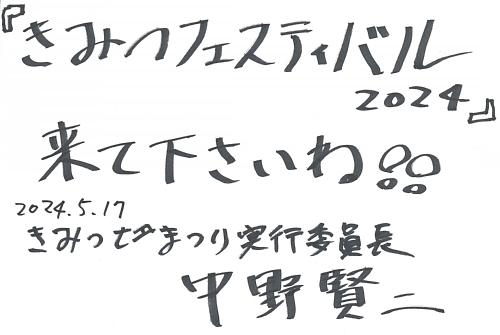 『きみつフェスティバル
2024』
来て下さいね!!
2024.5.17
きみつ七夕まつり実行委員長
中野賢二